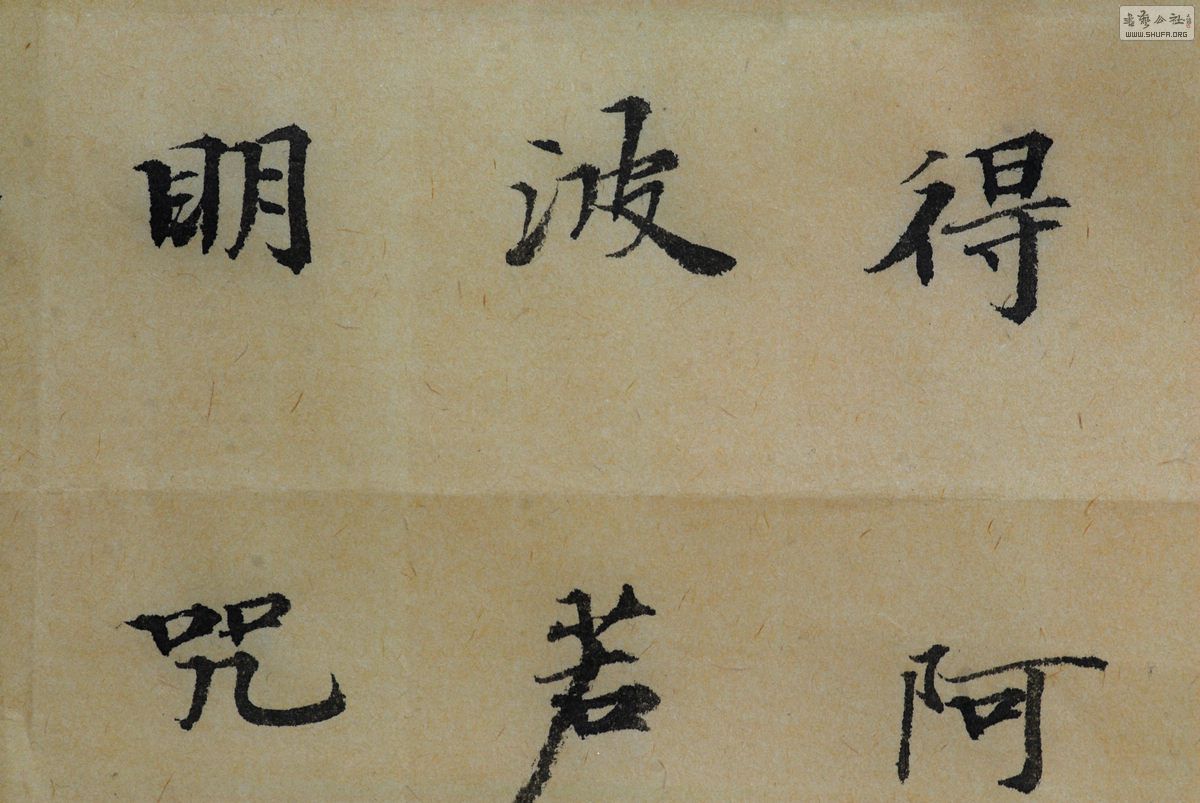 得阿
波若
明咒
書藝公社
WWW.SHUFA.ORG